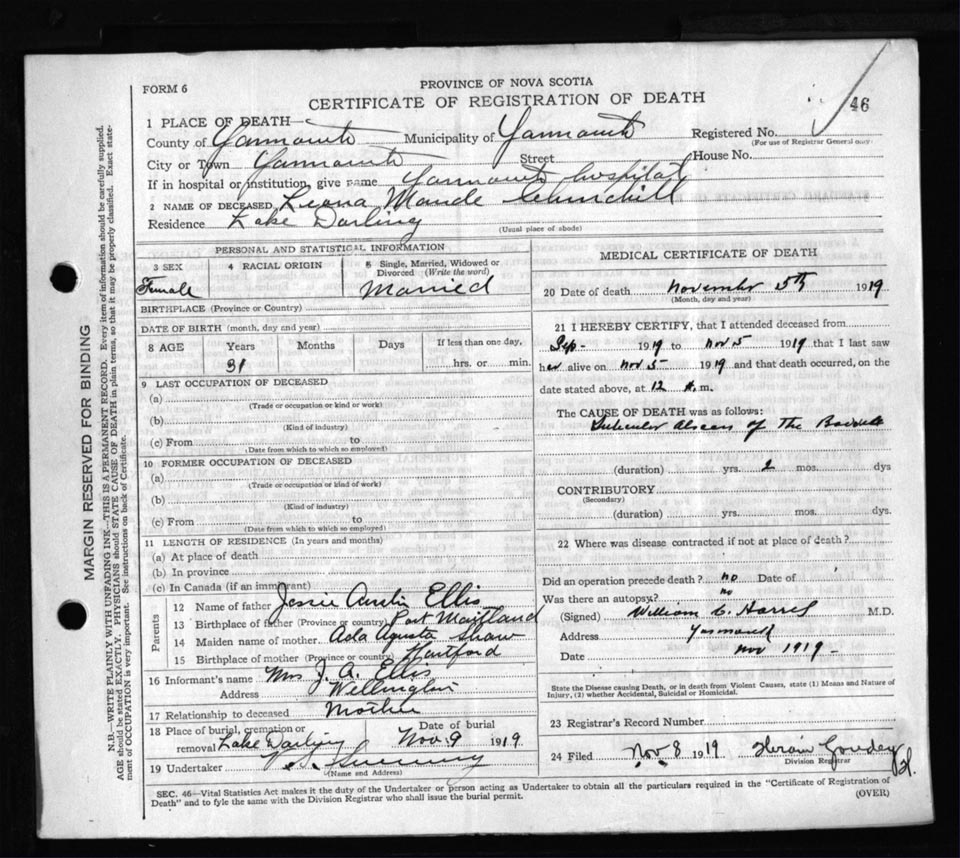 FORM 6
PROVINCE OF NOVA SCOTIA
CERTIFICATE OF REGISTRATION OF DEATH
46
1 PLACE OF DEATH—
County of Yarmouth Municipality of Yarmouth Registered No.
(For use of Registrar General only)
City or Town Yarmouth Street House No.
If in hospital or institution, give name Yarmouth hospital
2 NAME OF DECEASED Leona Maude Churchill
Residence Lake Darling
(Usual place of abode)
PERSONAL AND STATISTICAL INFORMATION
3 SEX 4 RACIAL ORIGIN 5 Single, Married, Widowed or Divorced (Write the word)
Female Married
BIRTHPLACE (Province or Country)
DATE OF BIRTH (month, day and year)
8 AGE Years Months Days If less than one day,
31 hrs. or min.
9 LAST OCCUPATION OF DECEASED
(a)
(Trade or occupation or kind or work)
(b)
(Kind of industry)
(c) From to
(Date from which to which so employed)
10 FORMER OCCUPATION OF DECEASED
(a)
(Trade or occupation or kind of work)
(b)
(Kind of industry)
(c) From to
(Date from which to which so employed)
11 LENGTH OF RESIDENCE (In years and months)
(a) At place of death
(b) In province
(c) In Canada (if an immigrant)
Parents
12 Name of father Ellis
13 Birthplace of father (Province or country) Port Maitland
14 Maiden name of mother Ada Agusta Shaw
15 Birthplace of mother (Province or country) Hartford
16 Informant's name Mrs J. A. Ellis
Address Wellington
17 Relationship to deceased Mother
18 Place of burial, cremation or removal Lake Darling Date of burial Nov 9 1919
19 Undertaker
(Name and Address)
MEDICAL CERTIFICATE OF DEATH
20 Date of death November 5th 1919
(Month, day and year)
21 I HEREBY CERTIFY, that I attended deceased from
Sep - 1919 to Nov 5 1919 that I last saw
her alive on Nov 5 - 1919 and that death occurred, on the
date stated above, at 12 m.
The CAUSE OF DEATH was as follows:
of The
(duration) yrs. 2 mos. dys
CONTRIBUTORY
(Secondary)
(duration) yrs. mos. dys.
22 Where was disease contracted if not at place of death?
Did an operation precede death? no Date of
Was there an autopsy? no
(Signed) William C. M.D.
Address Yarmouth
Date Nov 1919 -
State the Disease causing Death, or in death from Violent Causes, state (1) Means and Nature of
Injury, (2) whether Accidental, Suicidal or Homicidal.
23 Registrar's Record Number
24 Filed Nov 8 1919
Division Registrar
SEC. 46—Vital Statistics Act makes it the duty of the Undertaker or person acting as Undertaker to obtain all the particulars required in the "Certificate of Registration of
Death" and to fyle the same with the Division Registrar who shall issue the burial permit. (OVER)
MARGIN RESERVED FOR BINDING
N.B.—WRITE PLAINLY WITH UNFADING INK—THIS IS A PERMANENT RECORD. Every item of information should be carefully supplied.
AGE should be stated EXACTLY. PHYSICIANS should STATE CAUSE OF DEATH in plain terms, so that it may be properly classified. Exact state-
ment of OCCUPATION is very important. See instructions on back of Certificate.